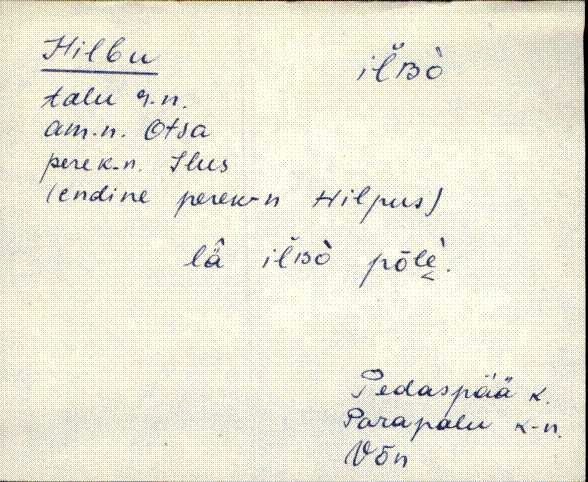 Hilbu
iľ̆ʙò
talu r.n.
am.n. Otsa
perek-n. Ilus
(endine perek-n Hilpus)
lä̂ iľ̆ʙò pōlè̬.
Pedaspää k.
Parapalu k-n.
Võn